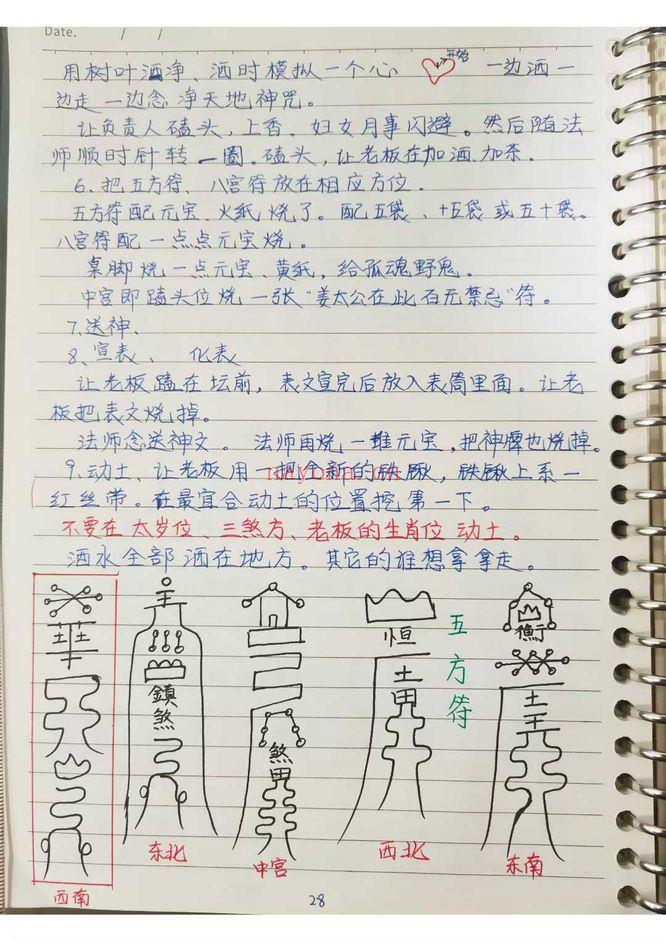 Date. / /
用树叶洒净、洒时模拟一个心 开始 一边洒一
边走一边念净天地神咒。
让负责人磕头,上香、妇女月事闪避。然后随法
师顺时针转一圈.磕头,让老板在加酒.加茶.
6、把五方符、八宫符放在相应方位.
五方符配元宝、火纸烧了。配五袋、十五袋或五十袋。
八宫符配一点点元宝烧。
桌脚烧一点元宝、黄纸,给孤魂野鬼.
中宫即磕头位烧一张“姜太公在此百无禁忌”符。
7、送神、
8、宣表、 化表
让老板跪在坛前,表文宣完后放入表筒里面。让老
板把表文烧掉。
法师念送神文。法师再烧一堆元宝,把神牌也烧掉。
9、动土、让老板用一把全新的铁锹,铁锹上系一
红丝带。在最宜合动土的位置挖第一下。
不要在太岁位、三煞方、老板的生肖位动土。
洒水全部洒在地方。其它的谁想拿拿走。
五方符
鎮煞
煞田
恒
土田
衡
西南
东北
中宫
西北
东南
28